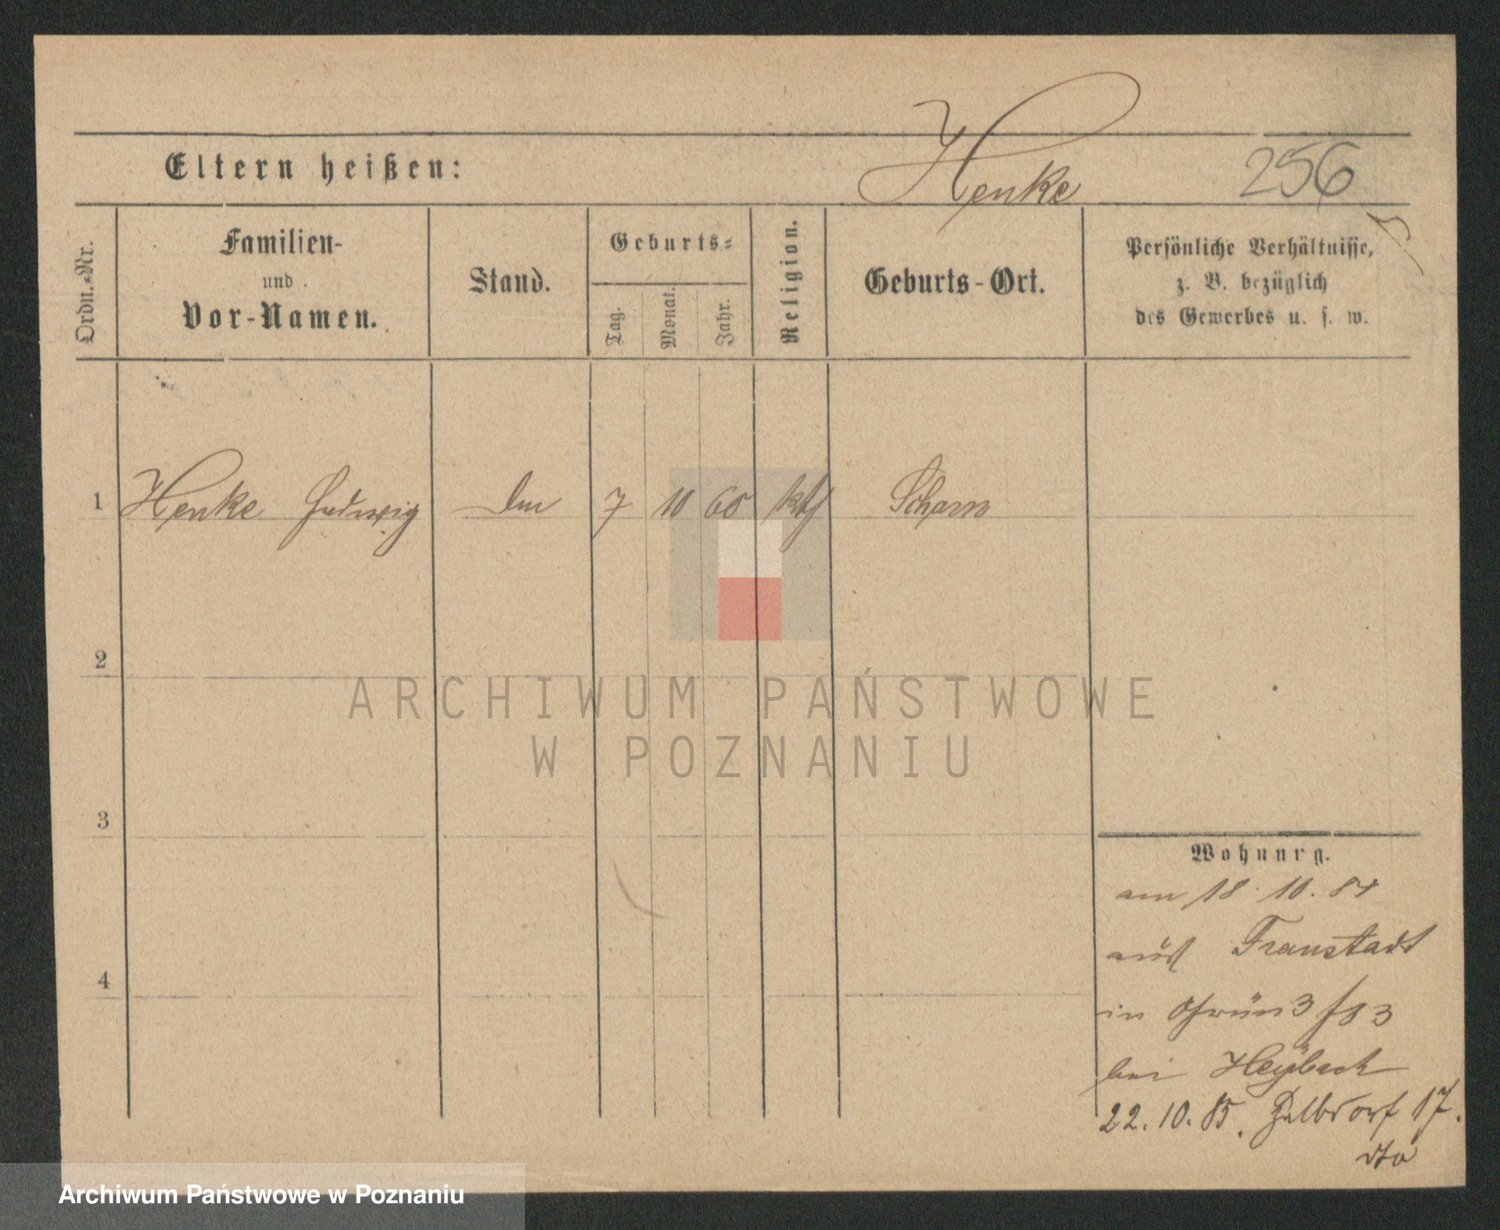 Henke
Eltern heißen:
256
Ordn.-Nr.
Familien-
und
Vor-Namen.
Stand.
Geburts-
Tag.
Monat.
Jahr.
Religion.
Geburts-Ort.
Persönliche Verhältnisse,
z. B. bezüglich
des Gewerbes u. s. w.
1 Henke Ludwig 7 10 60 kth
2
3
4
ARCHIWUM PAŃSTWOWE
W POZNANIU
Wohnung.
am 18. 10. 84
aus Fraustadt
in
bei Heÿbach
22. 10. 85. 17.
dto
Archiwum Państwowe w Poznaniu